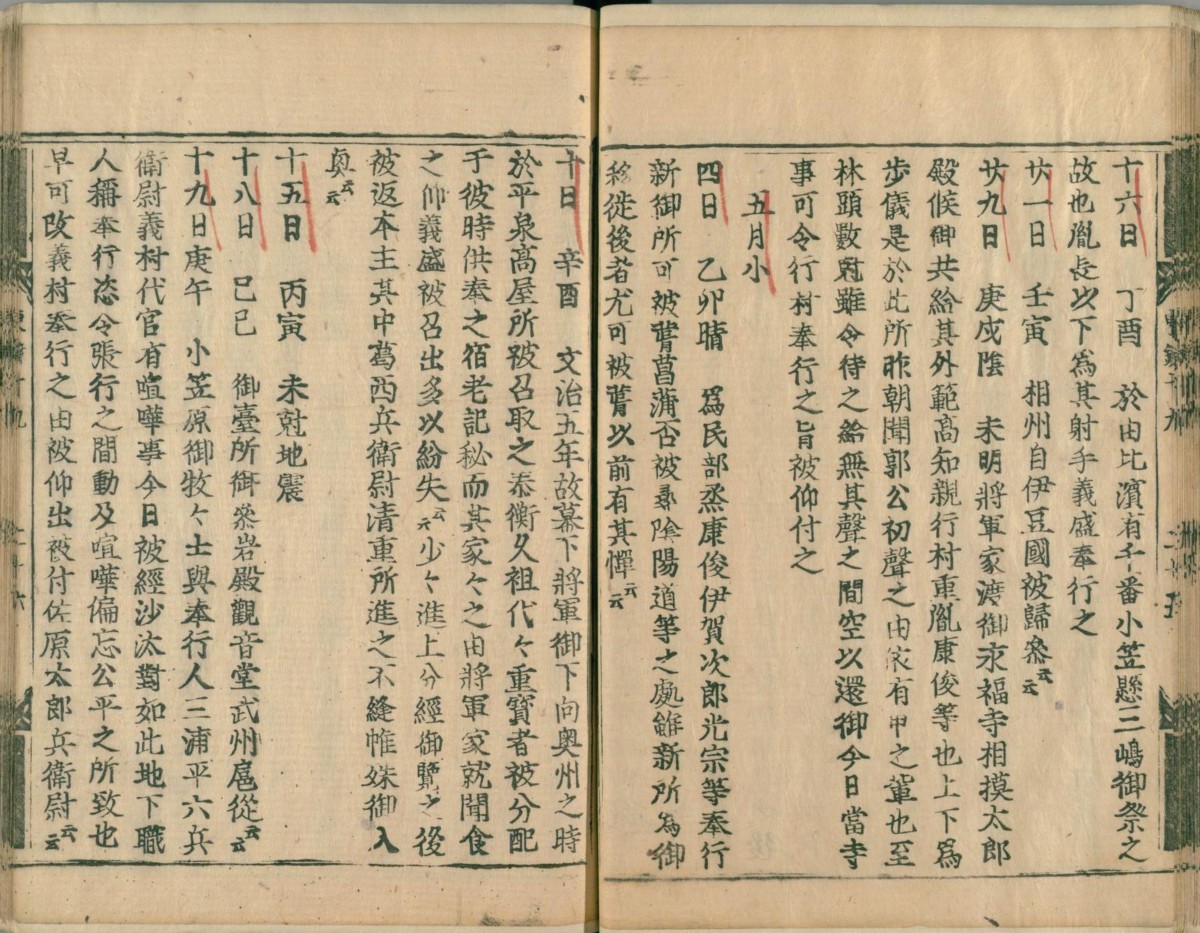 十六日　丁酉　於由比濱有千番小笠懸三嶋御祭之
故也胤長以下爲其射手義盛奉行之
廿一日　壬寅　相州自伊豆國被歸參云云
廿九日　庚戌陰　未明將軍家渡御永福寺相摸太郎
殿候御共給其外範高知親行村重胤康俊等也上下爲
歩儀是於此所昨朝聞郭公初聲之由依有申之輩也至
林頭數尅雖令待之給無其聲之間空以還御今日當寺
事可令行村奉行之旨被仰付之
五月小
四日　乙卯晴　爲民部丞康俊伊賀次郎光宗等奉行
新御所可被葺菖蒲否被尋陰陽道等之處雖新所爲御
移徙後者尤可被葺以前有其憚云云
十日　辛酉　文治五年故幕下將軍御下向奥州之時
於平泉高屋所被召取之泰衡久祖代々重寳者被分配
于彼時供奉之宿老記秘而其家々之由將軍家就聞食
之仰義盛被召出多以紛失云云少々進上分經御覽之後
被返本主其中葛西兵衛尉清重所進之不縫帷姝御入
奥云云
十五日　丙寅　未尅地震
十八日　己巳　御臺所御參岩殿觀音堂武州扈從云云
十九日庚午　小笠原御牧々士與奉行人三浦平六兵
衛尉義村代官有喧嘩事今日被經沙汰對如此地下職
人稱奉行恣令張行之間動及喧嘩偏忘公平之所致也
早可改義村奉行之由被仰出被付佐原太郎兵衛尉云云